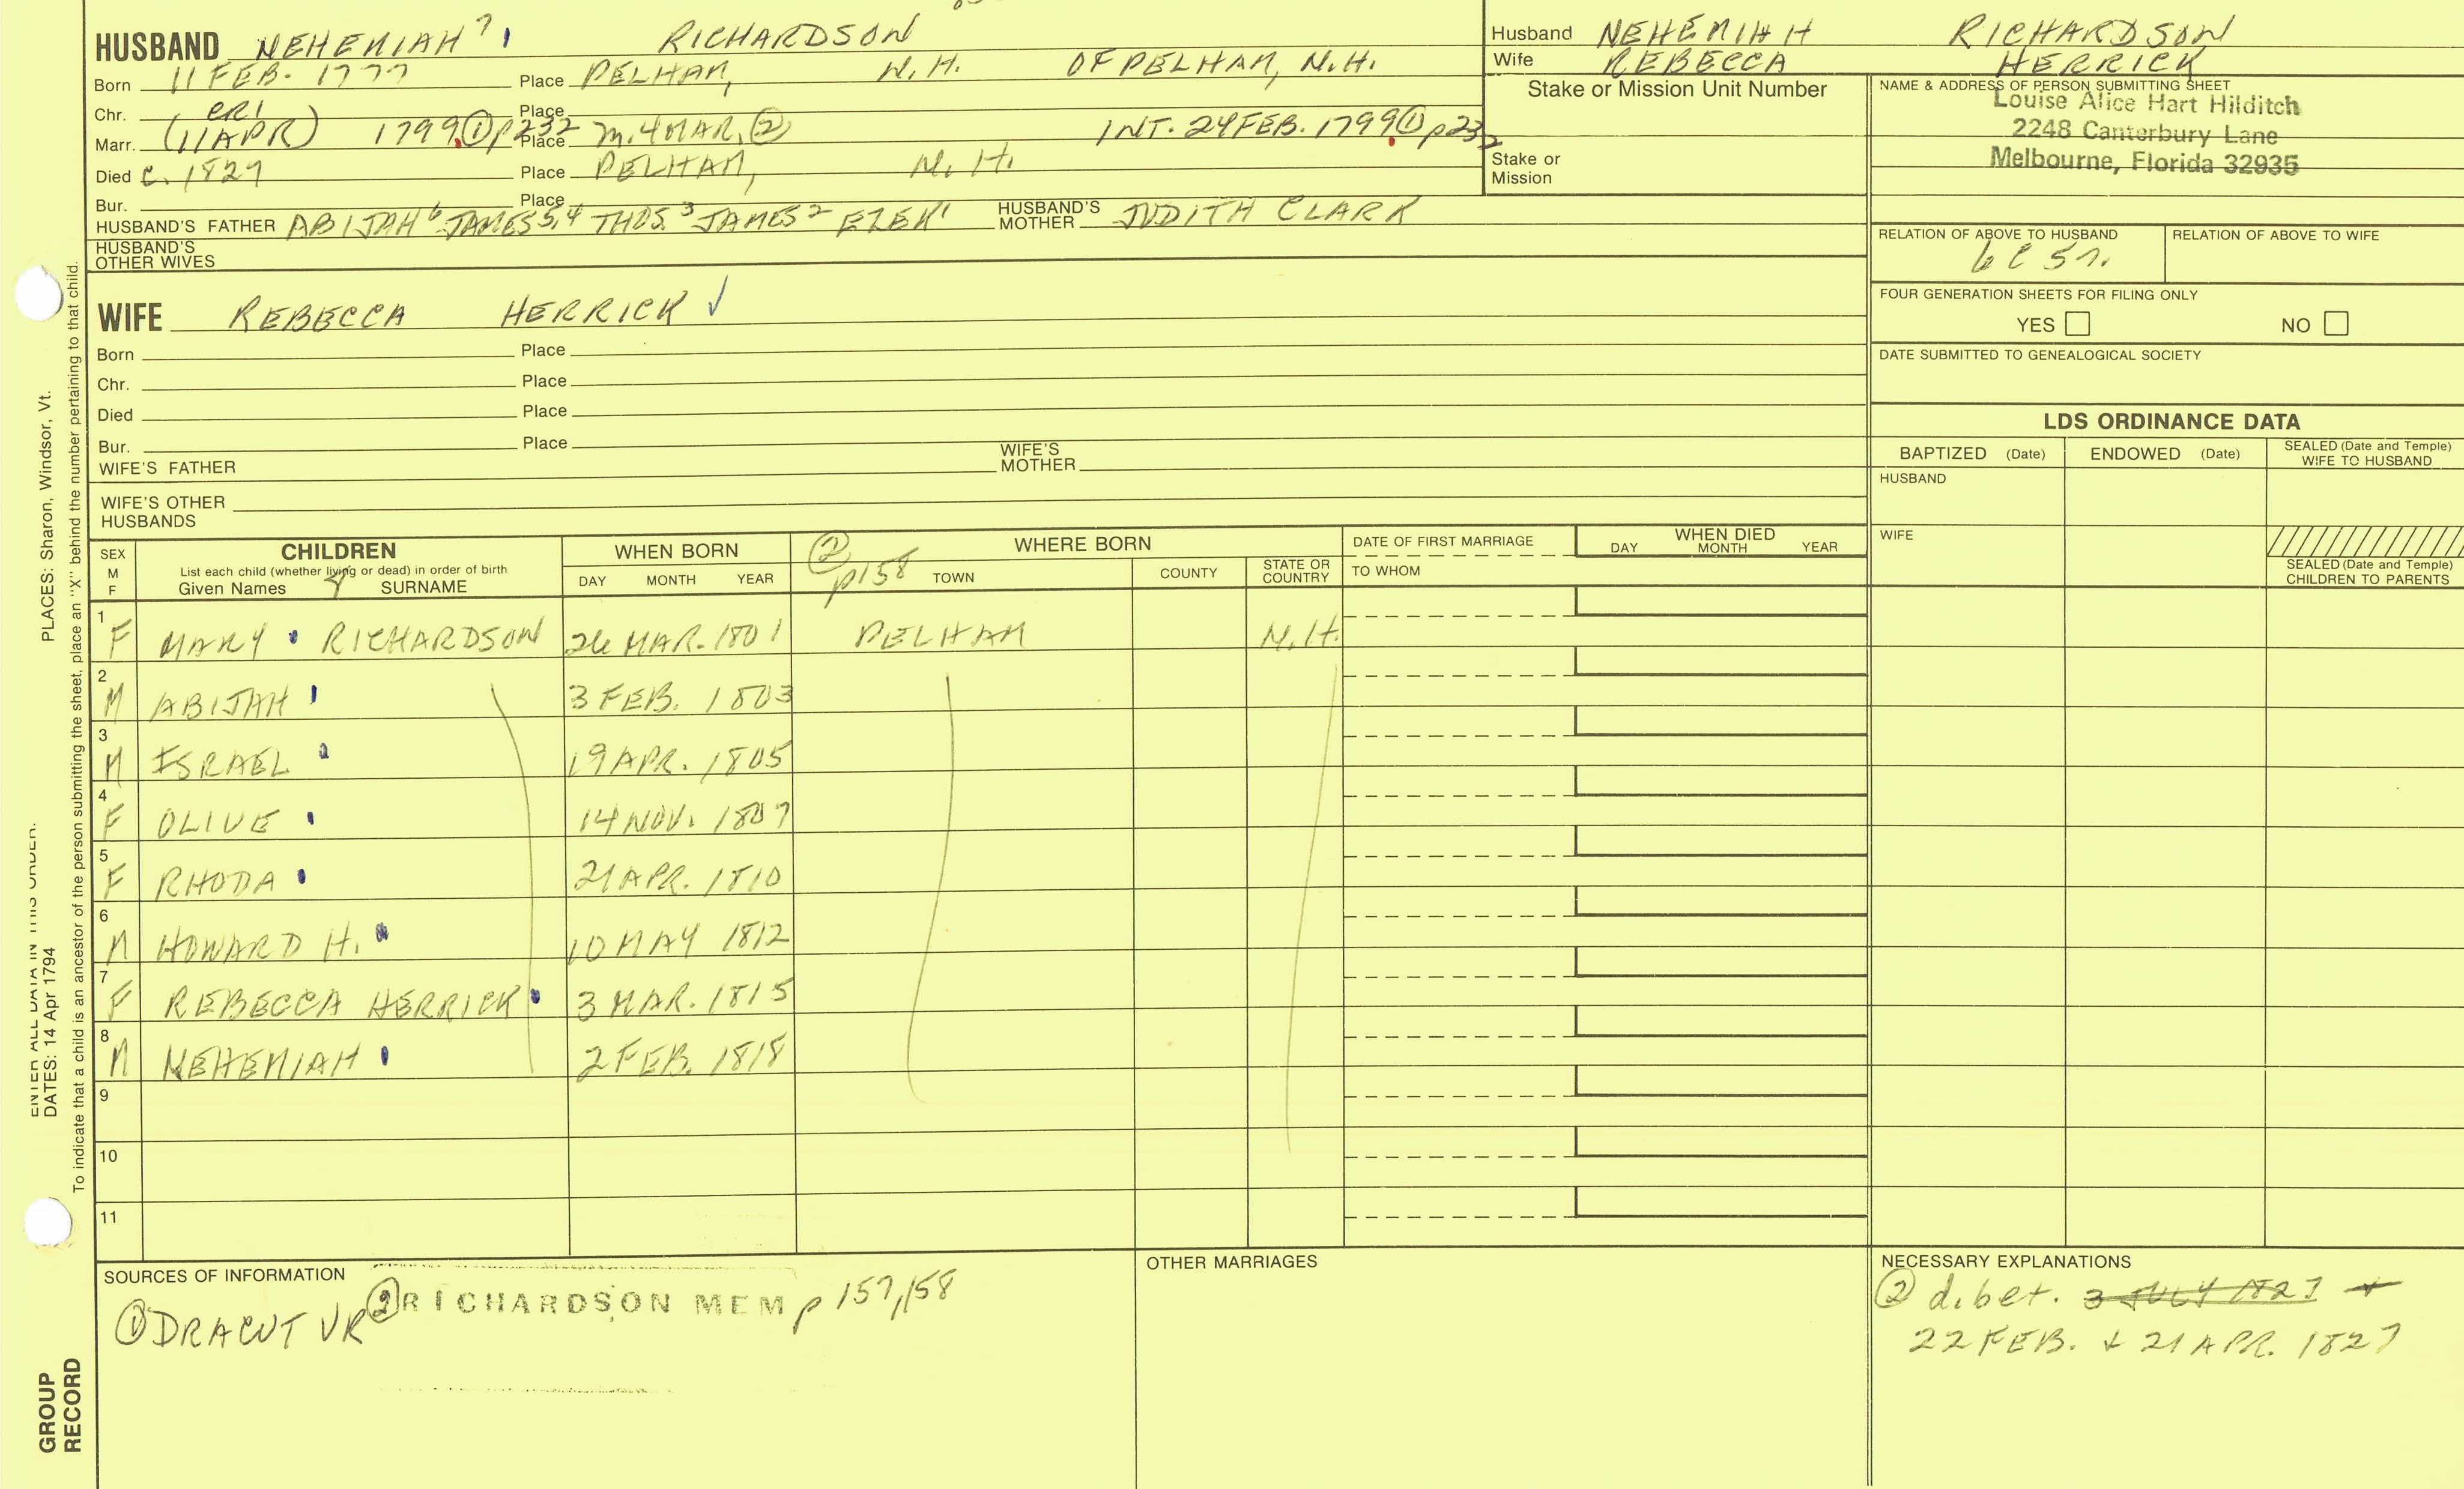 HUSBAND NEHEMIAH 7 RICHARDSON
Born 11 FEB. 1777 Place PELHAM, N.H. OF PELHAM, N.H.
Chr. Place
Marr. (11 APR) 1799 ① p232 Place m. 4 MAR. ② INT. 24 FEB. 1799 ① p232
Died c. 1827 Place PELHAM, N.H.
Bur. Place
HUSBAND'S FATHER ABIJAH 6 JAMES 5,4 THOS. 3 JAMES 2 EZEK 1 HUSBAND'S MOTHER JUDITH CLARK
HUSBAND'S OTHER WIVES
WIFE REBECCA HERRICK ✓
Born Place
Chr. Place
Died Place
Bur. Place
WIFE'S FATHER WIFE'S MOTHER
WIFE'S OTHER HUSBANDS
Husband NEHEMIAH RICHARDSON
Wife REBECCA HERRICK
Stake or Mission Unit Number
Stake or Mission
NAME & ADDRESS OF PERSON SUBMITTING SHEET
Louise Alice Hart Hilditch
2248 Canterbury Lane
Melbourne, Florida 32935
RELATION OF ABOVE TO HUSBAND RELATION OF ABOVE TO WIFE
FOUR GENERATION SHEETS FOR FILING ONLY
YES NO
DATE SUBMITTED TO GENEALOGICAL SOCIETY
LDS ORDINANCE DATA
BAPTIZED (Date) ENDOWED (Date) SEALED (Date and Temple) WIFE TO HUSBAND
HUSBAND
WIFE
SEALED (Date and Temple) CHILDREN TO PARENTS
SEX M F CHILDREN WHEN BORN ② p158 WHERE BORN DATE OF FIRST MARRIAGE WHEN DIED
List each child (whether living or dead) in order of birth
Given Names SURNAME DAY MONTH YEAR TOWN COUNTY STATE OR COUNTRY TO WHOM DAY MONTH YEAR
1 F MARY RICHARDSON 26 MAR. 1801 PELHAM N.H.
2 M ABIJAH 3 FEB. 1803
3 M ISRAEL 19 APR. 1805
4 F OLIVE 14 NOV. 1807
5 F RHODA 21 APR. 1810
6 M HOWARD H. 10 MAY 1812
7 F REBECCA HERRICK 3 MAR. 1815
8 M NEHEMIAH 2 FEB. 1818
9
10
11
SOURCES OF INFORMATION
① DRACUT VR ② RICHARDSON MEM p 157,158
OTHER MARRIAGES
NECESSARY EXPLANATIONS
② d. bet. 3 JULY 1827 +
22 FEB. + 21 APR. 1827
PLACES: Sharon, Windsor, Vt.
ENTER ALL DATA IN THIS ORDER:
DATES: 14 Apr 1794
To indicate that a child is an ancestor of the person submitting the sheet, place an "X" behind the number pertaining to that child.
GROUP
RECORD